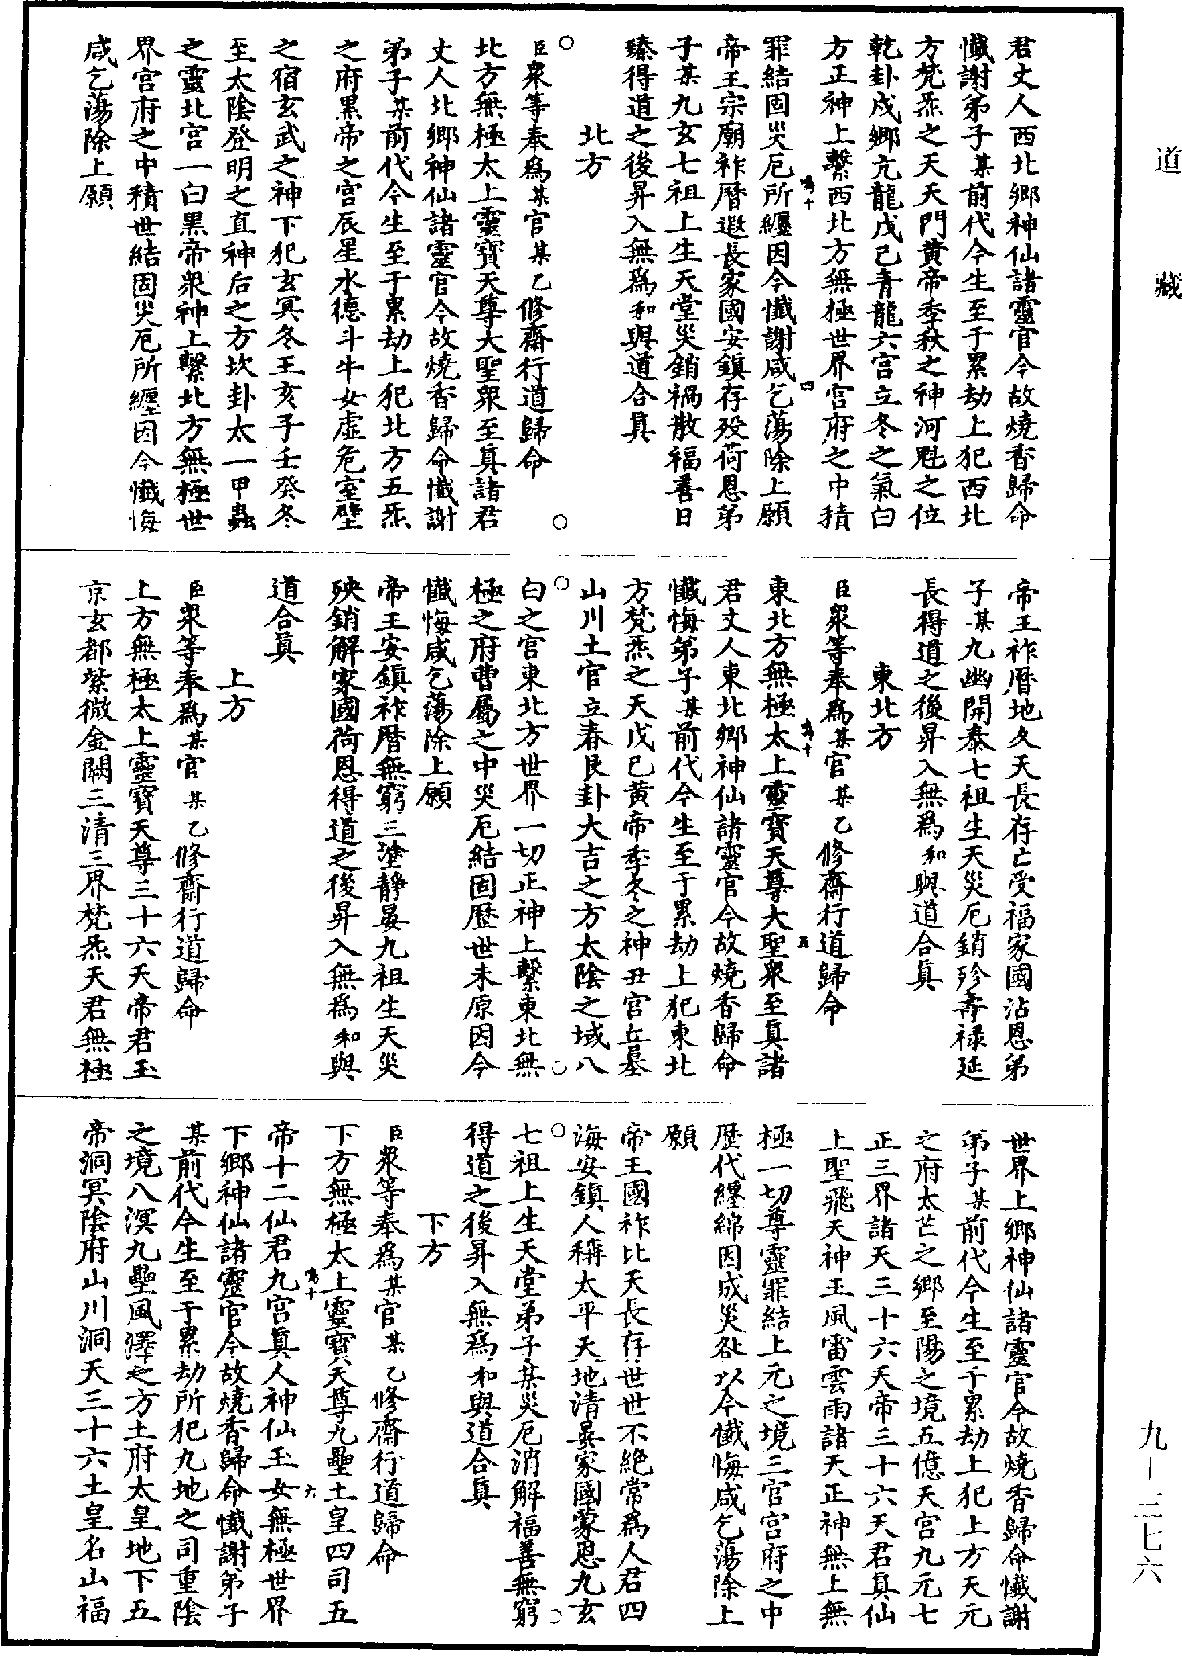 道藏
君丈人西北鄉神仙諸靈官今故燒香歸命
懺謝弟子某前代今生至于累劫上犯西北
方梵炁之天天門黃帝季秋之神河魁之位
乾卦戌鄉亢龍戊己青龍六宮立冬之氣白
方正神上繫西北方無極世界宮府之中積
罪結固災厄所纏因今懺謝咸乞蕩除上願
帝王宗廟祚曆遐長家國安鎮存歿荷恩弟
子某九玄七祖上生天堂災銷禍散福善日
臻得道之後昇入無爲和與道合真
北方
臣衆等奉爲某官某乙修齋行道歸命
北方無極太上靈寶天尊大聖衆至真諸君
丈人北鄉神仙諸靈官今故燒香歸命懺謝
弟子某前代今生至于累劫上犯北方五炁
之府黑帝之宮辰星水德斗牛女虛危室壁
之宿玄武之神下犯玄冥冬王亥子壬癸冬
至太陰登明之直神后之方坎卦太一甲蟲
之靈北宮一白黑帝衆神上繫北方無極世
界宮府之中積世結固災厄所纏因今懺悔
咸乞蕩除上願
帝王祚曆地久天長存亡受福家國沾恩弟
子某九幽開泰七祖生天災厄銷殄壽祿延
長得道之後昇入無爲和與道合真
東北方
臣衆等奉爲某官某乙修齋行道歸命
東北方無極太上靈寶天尊大聖衆至真諸
君丈人東北鄉神仙諸靈官今故燒香歸命
懺悔弟子某前代今生至于累劫上犯東北
方梵炁之天戊己黃帝季冬之神丑宮丘墓
山川土官立春艮卦大吉之方太陰之域八
白之宮東北方世界一切正神上繫東北無
極之府曹屬之中災厄結固歷世未原因今
懺悔咸乞蕩除上願
帝王安鎮祚曆無窮三塗靜晏九祖生天災
殃銷解家國荷恩得道之後昇入無爲和與
道合真
上方
臣衆等奉爲某官某乙修齋行道歸命
上方無極太上靈寶天尊三十六天帝君玉
京玄都紫微金闕三清三界梵炁天君無極
世界上鄉神仙諸靈官今故燒香歸命懺謝
弟子某前代今生至于累劫上犯上方天元
之府太芒之鄉至陽之境五億天宮九元七
正三界諸天三十六天帝三十六天君真仙
上聖飛天神王風雷雲雨諸天正神無上無
極一切尊靈罪結上元之境三官宮府之中
歷代纏綿因成災咎以今懺悔咸乞蕩除上
願
帝王國祚比天長存世世不絕常爲人君四
海安鎮人稱太平天地清晏家國蒙恩九玄
七祖上生天堂弟子某災厄消解福善無窮
得道之後昇入無爲和與道合真
下方
臣衆等奉爲某官某乙修齋行道歸命
下方無極太上靈寶天尊九壘土皇四司五
帝十二仙君九宮真人神仙玉女無極世界
下鄉神仙諸靈官今故燒香歸命懺謝弟子
某前代今生至于累劫所犯九地之司重陰
之境八溟九壘風澤之方土府太皇地下五
帝洞冥陰府山川洞天三十六土皇名山福
九—三七六